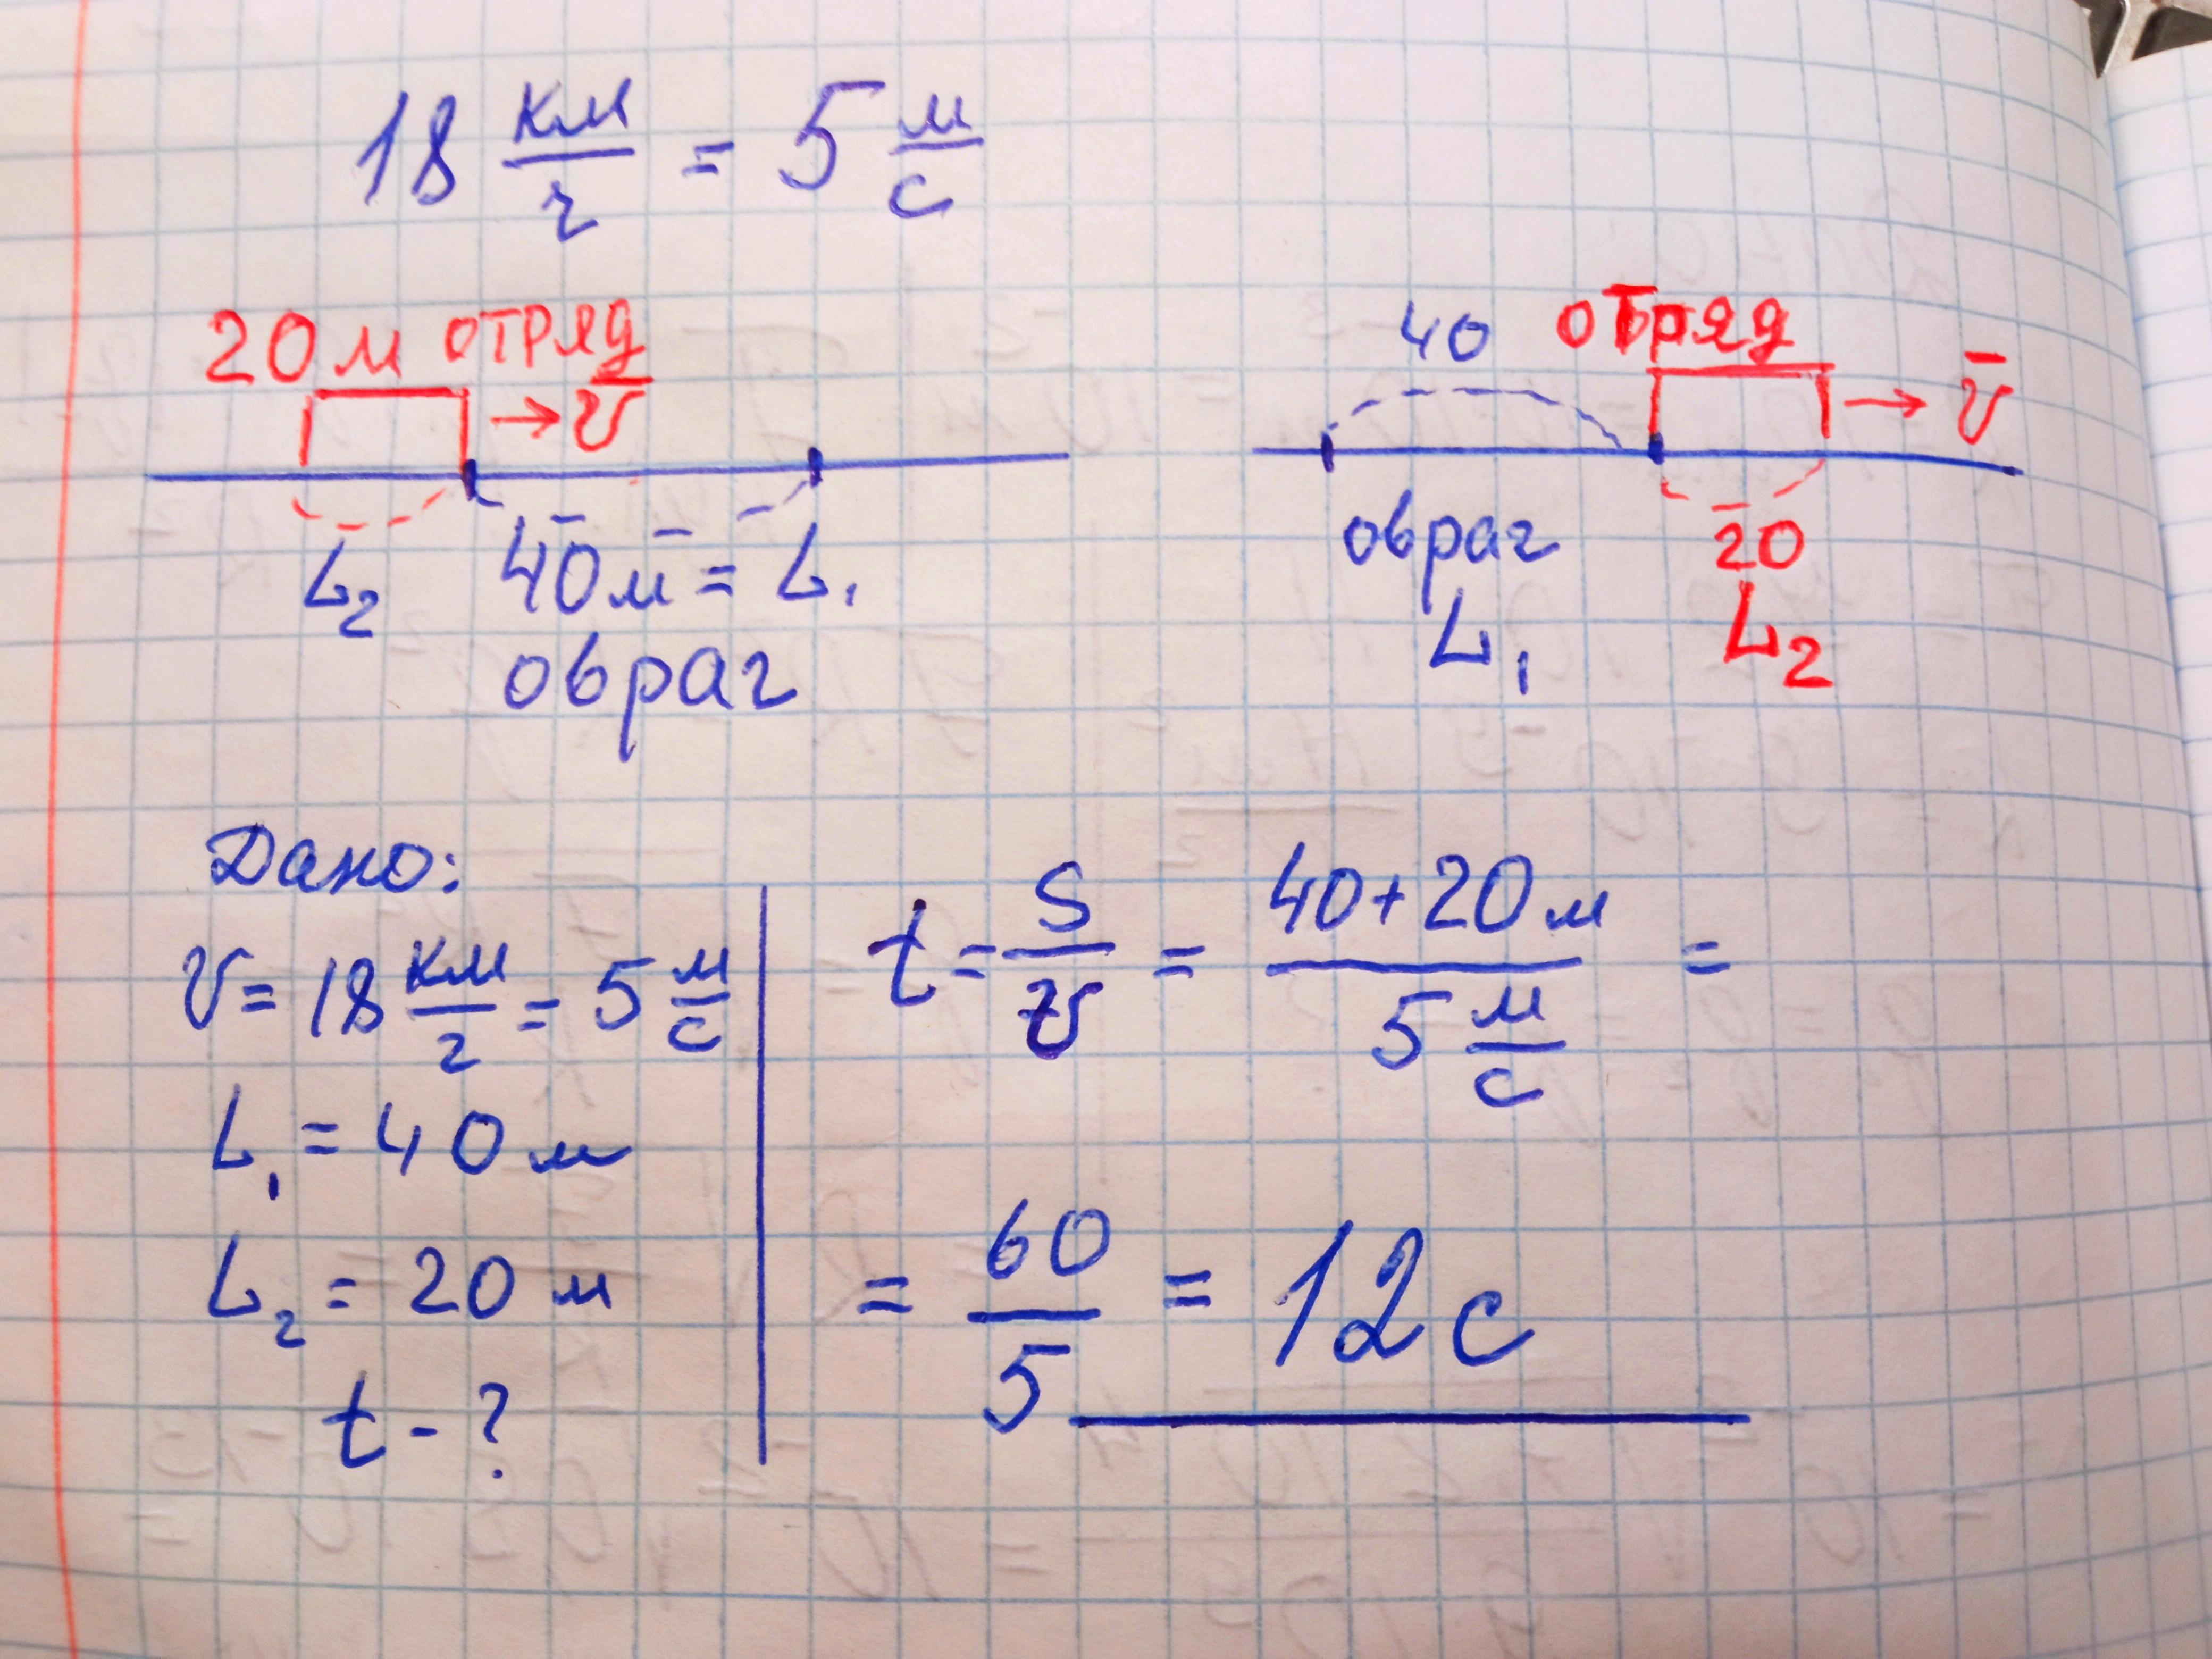 18 км/ч = 5 м/с
20 м отряд
→ v̅
L₂ 40 м = L₁
овраг
40 отряд
→ v̅
овраг 20
L₁ L₂
Дано:
v = 18 км/ч = 5 м/с
L₁ = 40 м
L₂ = 20 м
t - ?
t = S/v = (40 + 20 м)/(5 м/с) =
= 60/5 = 12 с